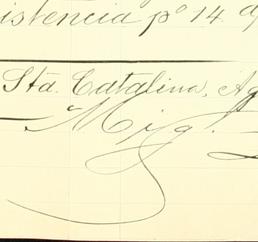 istencia pº 14 d
Sta. Catalina, Ag
Mig.